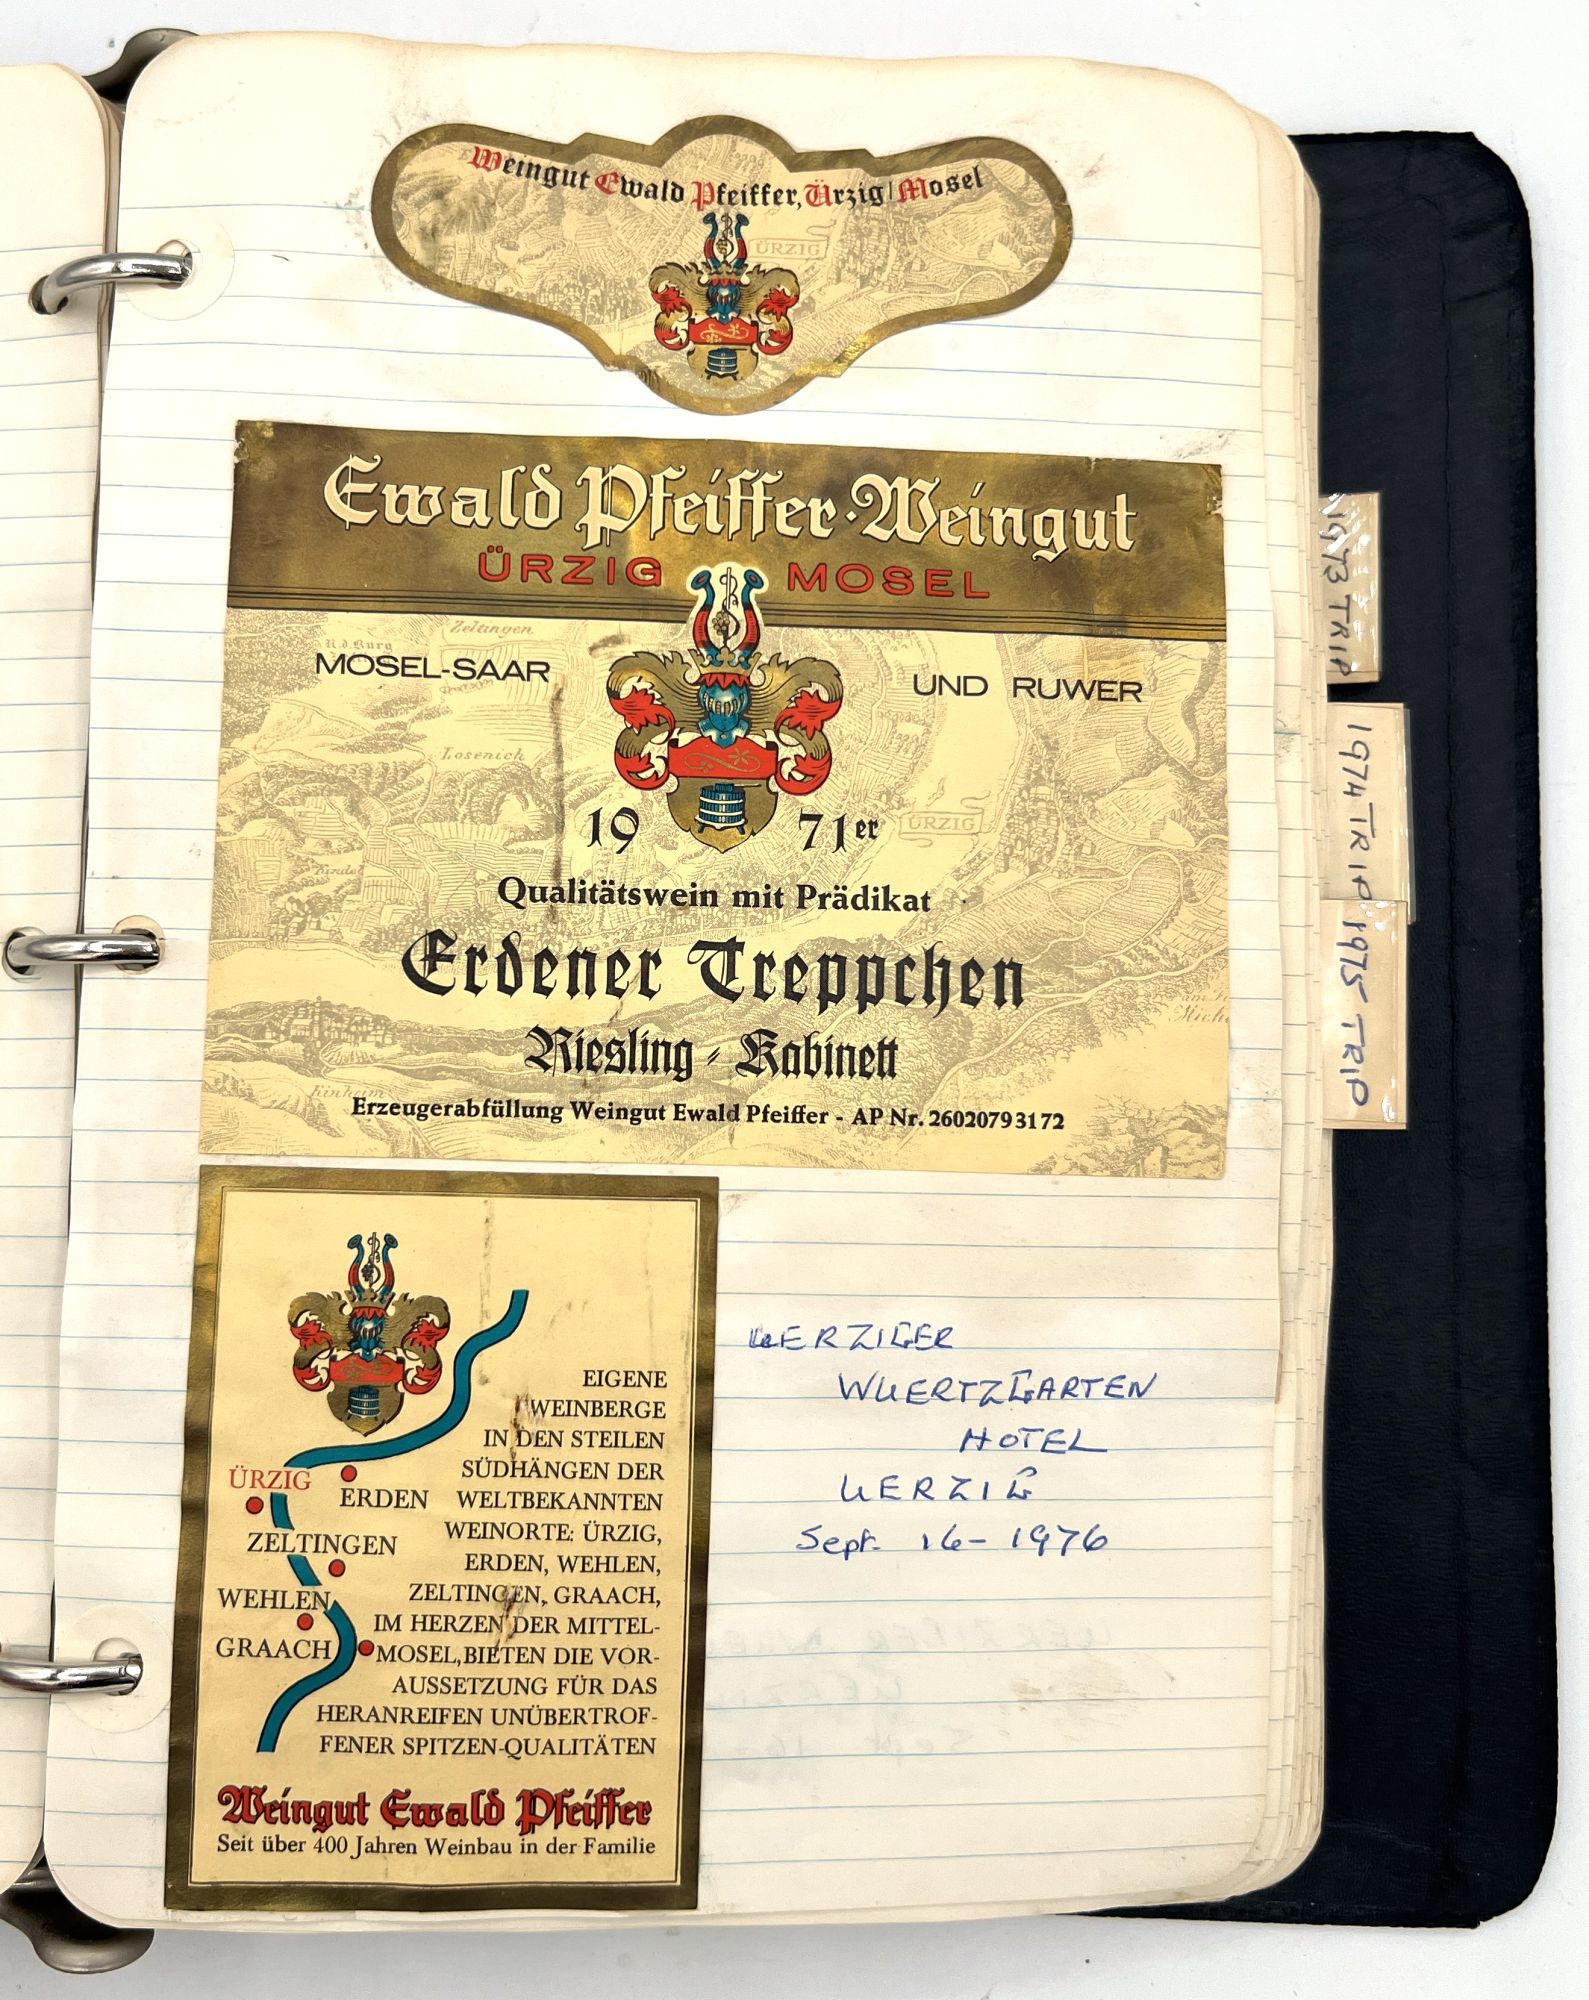 Weingut Ewald Pfeiffer, Ürzig/Mosel
ÜRZIG
Ewald Pfeiffer · Weingut
ÜRZIG MOSEL
Zeltingen
MOSEL-SAAR UND RUWER
Losenich
1971er
ÜRZIG
Qualitätswein mit Prädikat
Erdener Treppchen
Riesling - Kabinett
Erzeugerabfüllung Weingut Ewald Pfeiffer - AP Nr. 26020793172
EIGENE
WEINBERGE
IN DEN STEILEN
SÜDHÄNGEN DER
WELTBEKANNTEN
WEINORTE: ÜRZIG,
ERDEN, WEHLEN,
ZELTINGEN, GRAACH,
IM HERZEN DER MITTEL-
MOSEL, BIETEN DIE VOR-
AUSSETZUNG FÜR DAS
HERANREIFEN UNÜBERTROF-
FENER SPITZEN-QUALITÄTEN
ÜRZIG
ERDEN
ZELTINGEN
WEHLEN
GRAACH
Weingut Ewald Pfeiffer
Seit über 400 Jahren Weinbau in der Familie
UERZIGER
WUERTZGARTEN
HOTEL
UERZIG
Sept. 16 - 1976
1973 TRIP
1974 TRIP
1975 TRIP